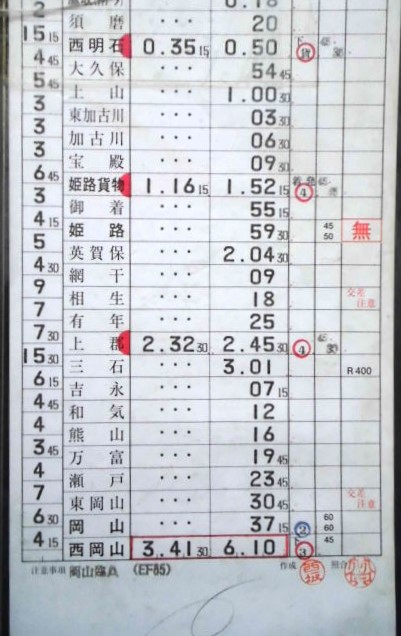 2 0.18
須磨 ・・・ 20
15 15 西明石 0.35 15 0.50 貨
4 45 大久保 ・・・ 54 45
5 45 土山 ・・・ 1.00 30
3 東加古川 ・・・ 03 30
3 加古川 ・・・ 06 30
3 宝殿 ・・・ 09 30
6 45 姫路貨物 1.16 15 1.52 15 着発 4
3 御着 ・・・ 55 15
4 15 姫路 ・・・ 59 30 45 50 無
5 英賀保 ・・・ 2.04 30
4 30 網干 ・・・ 09
9 相生 ・・・ 18 交差注意
7 有年 ・・・ 25
7 30 上郡 2.32 30 2.45 30 4
15 30 三石 ・・・ 3.01 R400
6 15 吉永 ・・・ 07 15
4 45 和気 ・・・ 12
4 熊山 ・・・ 16
3 45 万富 ・・・ 19 45
4 瀬戸 ・・・ 23 45
7 東岡山 ・・・ 30 45 交差注意
6 30 岡山 ・・・ 37 15 2 60 60
4 15 西岡山 3.41 30 6.10 3 45
注意事項 岡山臨A (EF65) 作成 照合